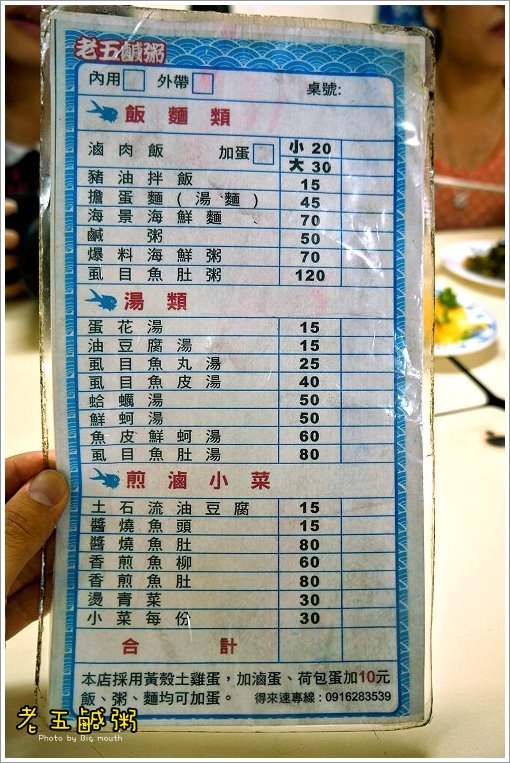 老五鹹粥
內用 外帶 桌號:
飯麵類
滷肉飯 加蛋 小 20
大 30
豬油拌飯 15
擔蛋麵(湯麵) 45
海景海鮮麵 70
鹹粥 50
爆料海鮮粥 70
虱目魚肚粥 120
湯類
蛋花湯 15
油豆腐湯 15
虱目魚丸湯 25
虱目魚皮湯 40
蛤蠣湯 50
鮮蚵湯 50
魚皮鮮蚵湯 60
虱目魚肚湯 80
煎滷小菜
土石流油豆腐 15
醬燒魚頭 15
醬燒魚肚 80
香煎魚柳 60
香煎魚肚 80
燙青菜 30
小菜每份 30
合計
本店採用黃殼土雞蛋，加滷蛋、荷包蛋加10元
飯、粥、麵均可加蛋。 得來速專線：0916283539
老五鹹粥
Photo by Big mouth